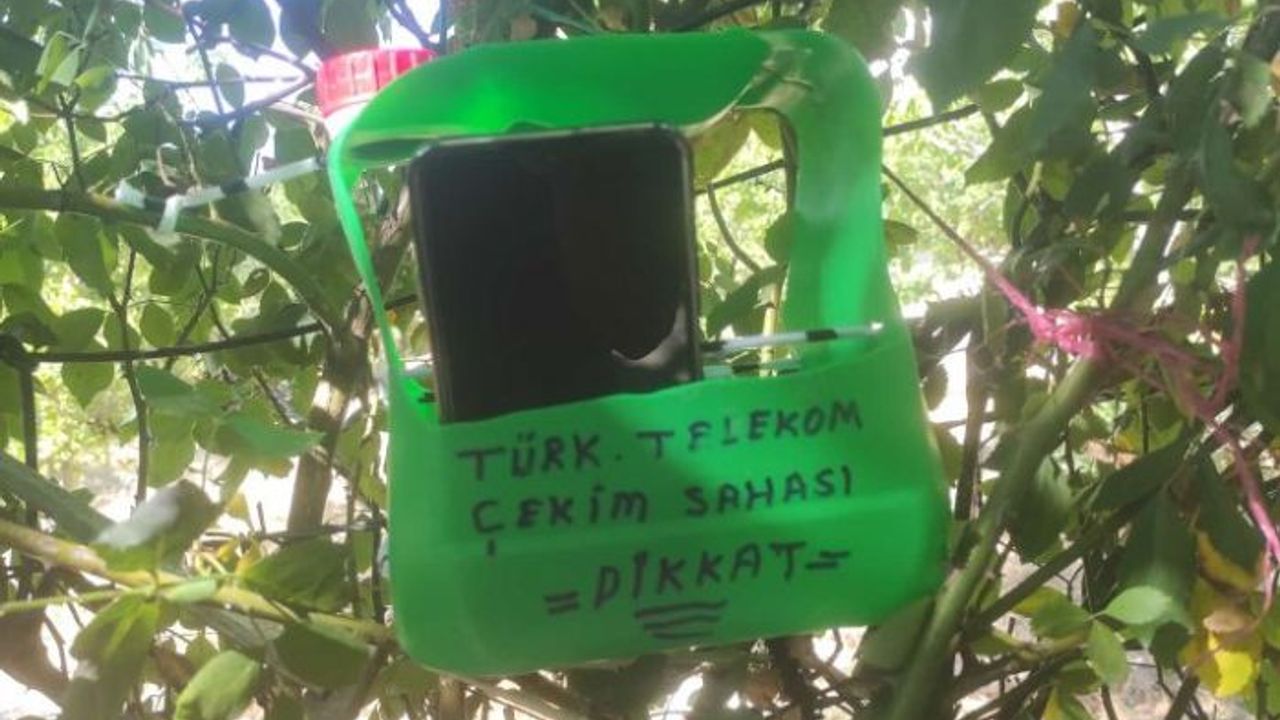 TÜRK. TELEKOM
ÇEKİM SAHASI
=DİKKAT=